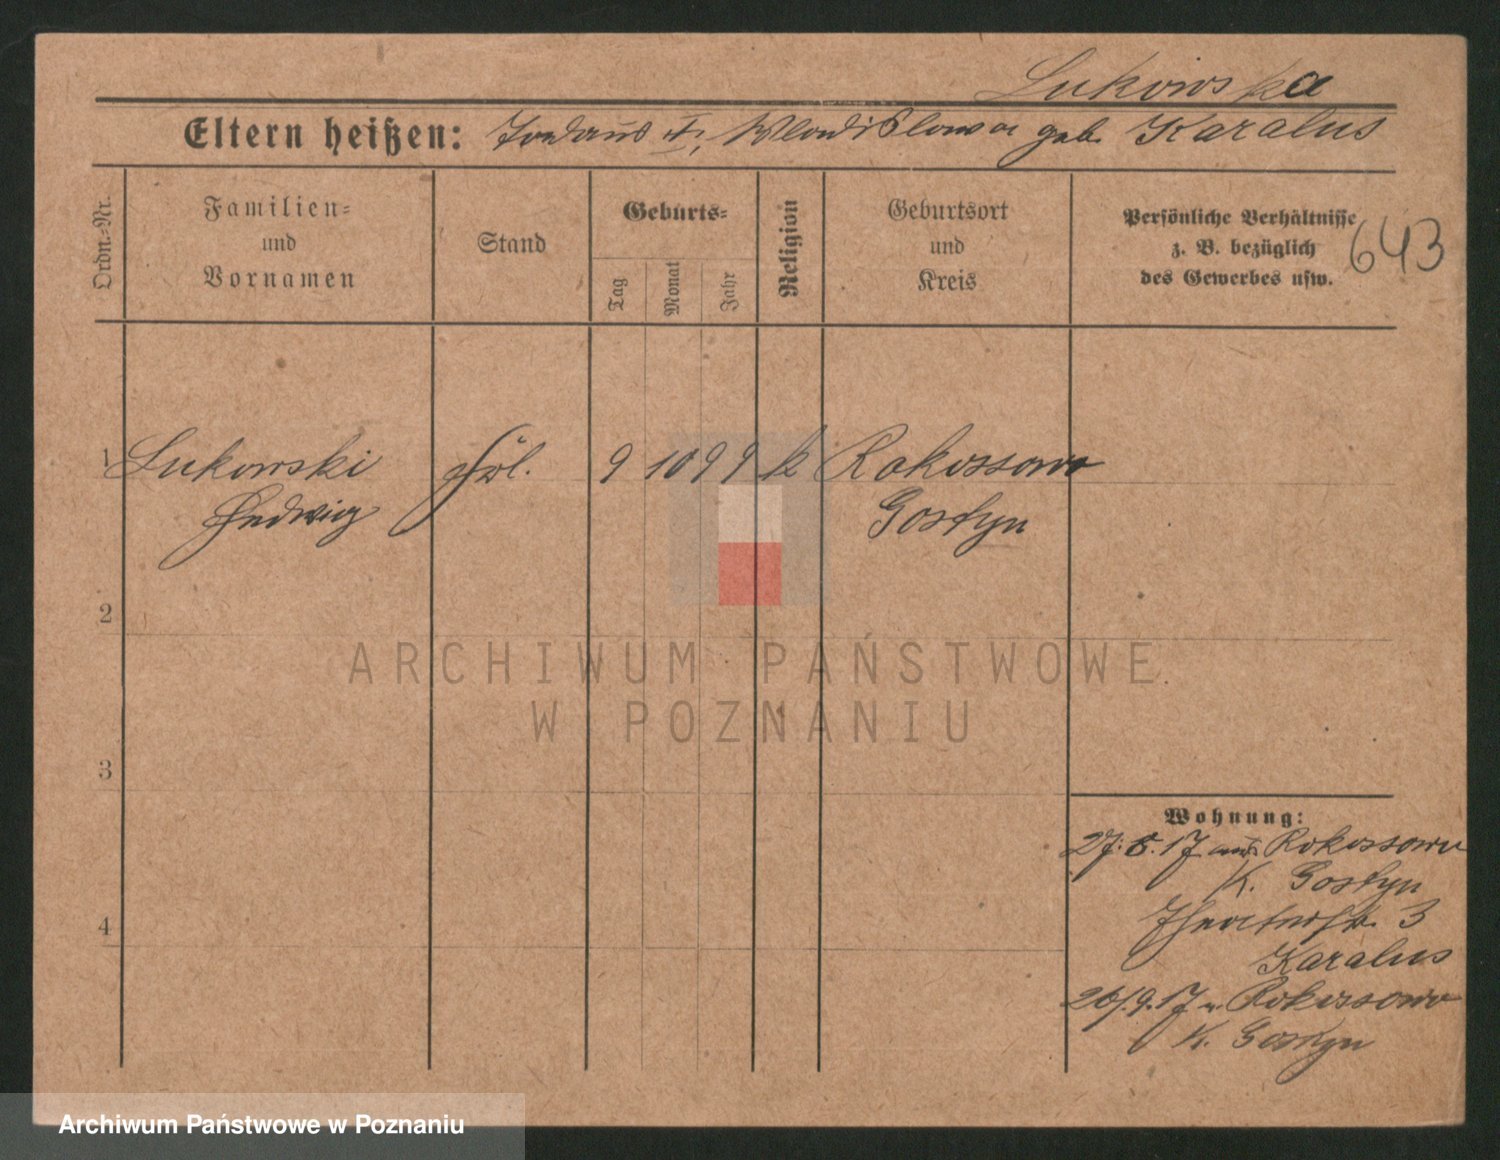 Lukowska
Eltern heißen: Wladislawa geb. Karalus
Ordn.-Nr.
Familien-
und
Vornamen
Stand
Geburts-
Tag
Monat
Jahr
Religion
Geburtsort
und
Kreis
Persönliche Verhältnisse
z. B. bezüglich
des Gewerbes usw.
643
1 Lukowski 9 10 99 k Rokossowo
Hedwig Gostyn
2
3
4
Wohnung:
27.6.17 aus Rokossowo
K. Gostyn
Theaterstr. 3
Karalus
26/9.17 n. Rokossowo
K. Gostyn
ARCHIWUM PAŃSTWOWE
W POZNANIU
Archiwum Państwowe w Poznaniu